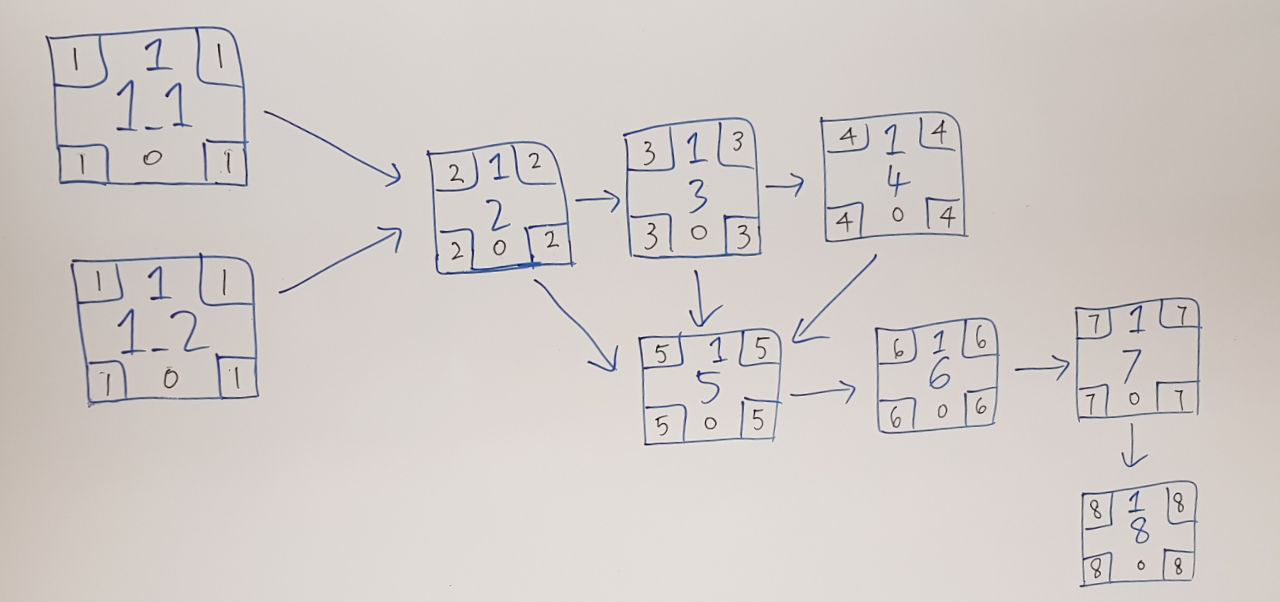 1 1 1
1_1
1 0 1
1 1 1
1_2
1 0 1
2 1 2
2
2 0 2
3 1 3
3
3 0 3
4 1 4
4
4 0 4
5 1 5
5
5 0 5
6 1 6
6
6 0 6
7 1 7
7
7 0 7
8 1 8
8
8 0 8